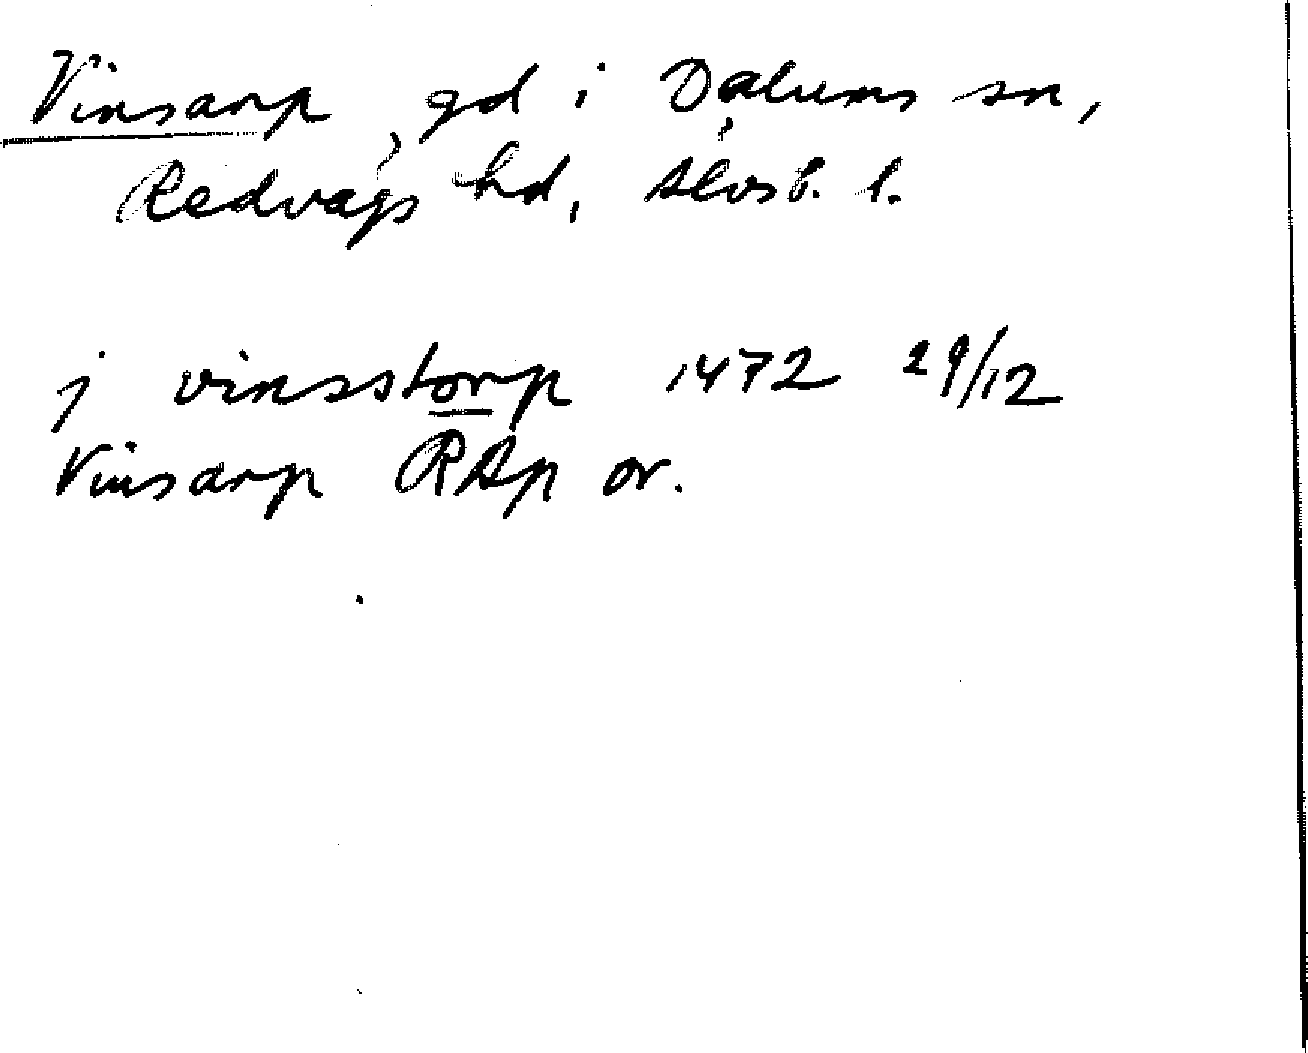 Vinsarp, gd i Dalums sn,
Redvägs hd, Älvsb. l.
j vinsstorp 1472 29/12
Vinsarp RAp or.